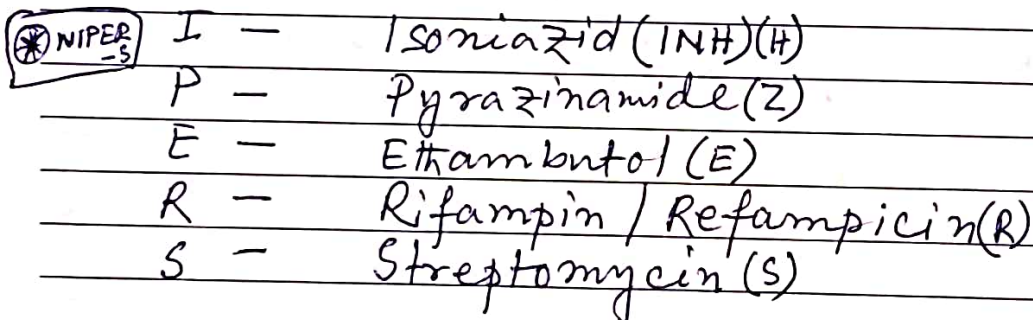 ⊛ NIPER-S
I - Isoniazid (INH)(H)
P - Pyrazinamide (Z)
E - Ethambutol (E)
R - Rifampin / Refampicin (R)
S - Streptomycin (S)